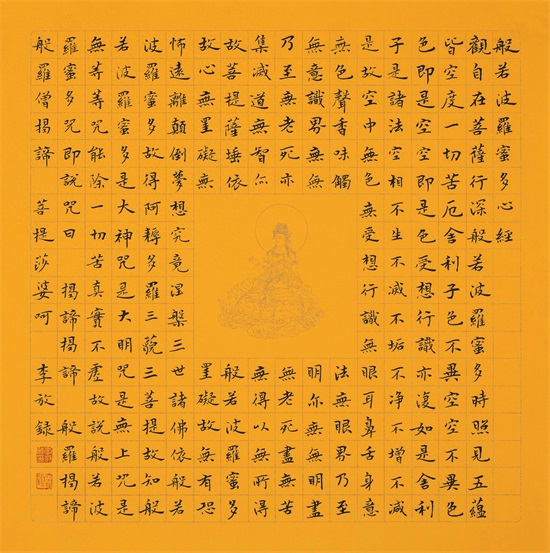 般若波羅蜜多心經
觀自在菩薩行深般若波羅蜜多時照見五蘊
皆空度一切苦厄舍利子色不異空空不異色
色即是空空即是色受想行識亦復如是舍利
子是諸法空相不生不滅不垢不净不增不減
是故空中無色無受想行識無眼耳鼻舌身意
無色聲香味觸法無眼界乃至
無意識界無無明亦無無明盡
乃至無老死亦無老死盡無苦
集滅道無智亦無得以無所得
故菩提薩埵依般若波羅蜜多
故心無罣礙無罣礙故無有恐
怖遠離顛倒夢想究竟涅槃三世諸佛依般若
波羅蜜多故得阿耨多羅三藐三菩提故知般
若波羅蜜多是大神咒是大明咒是無上咒是
無等等咒能除一切苦真實不虛故說般若波
羅蜜多咒即說咒曰 揭諦揭諦 般羅揭諦
般羅僧揭諦 菩提莎婆呵 李放錄